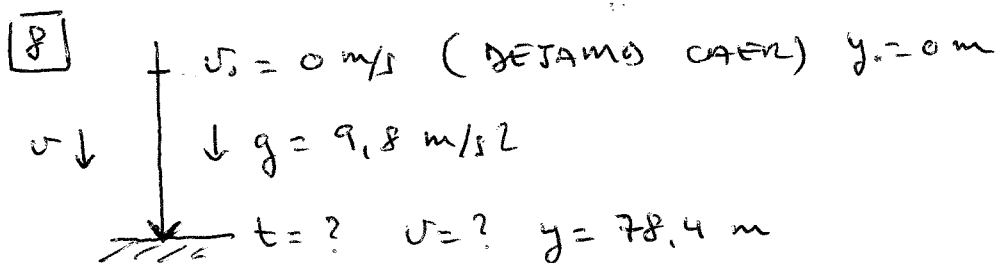 8
v₀ = 0 m/s (DEJAMOS CAER) y₀ = 0 m
v ↓ ↓ g = 9,8 m/s2
t = ? v = ? y = 78,4 m